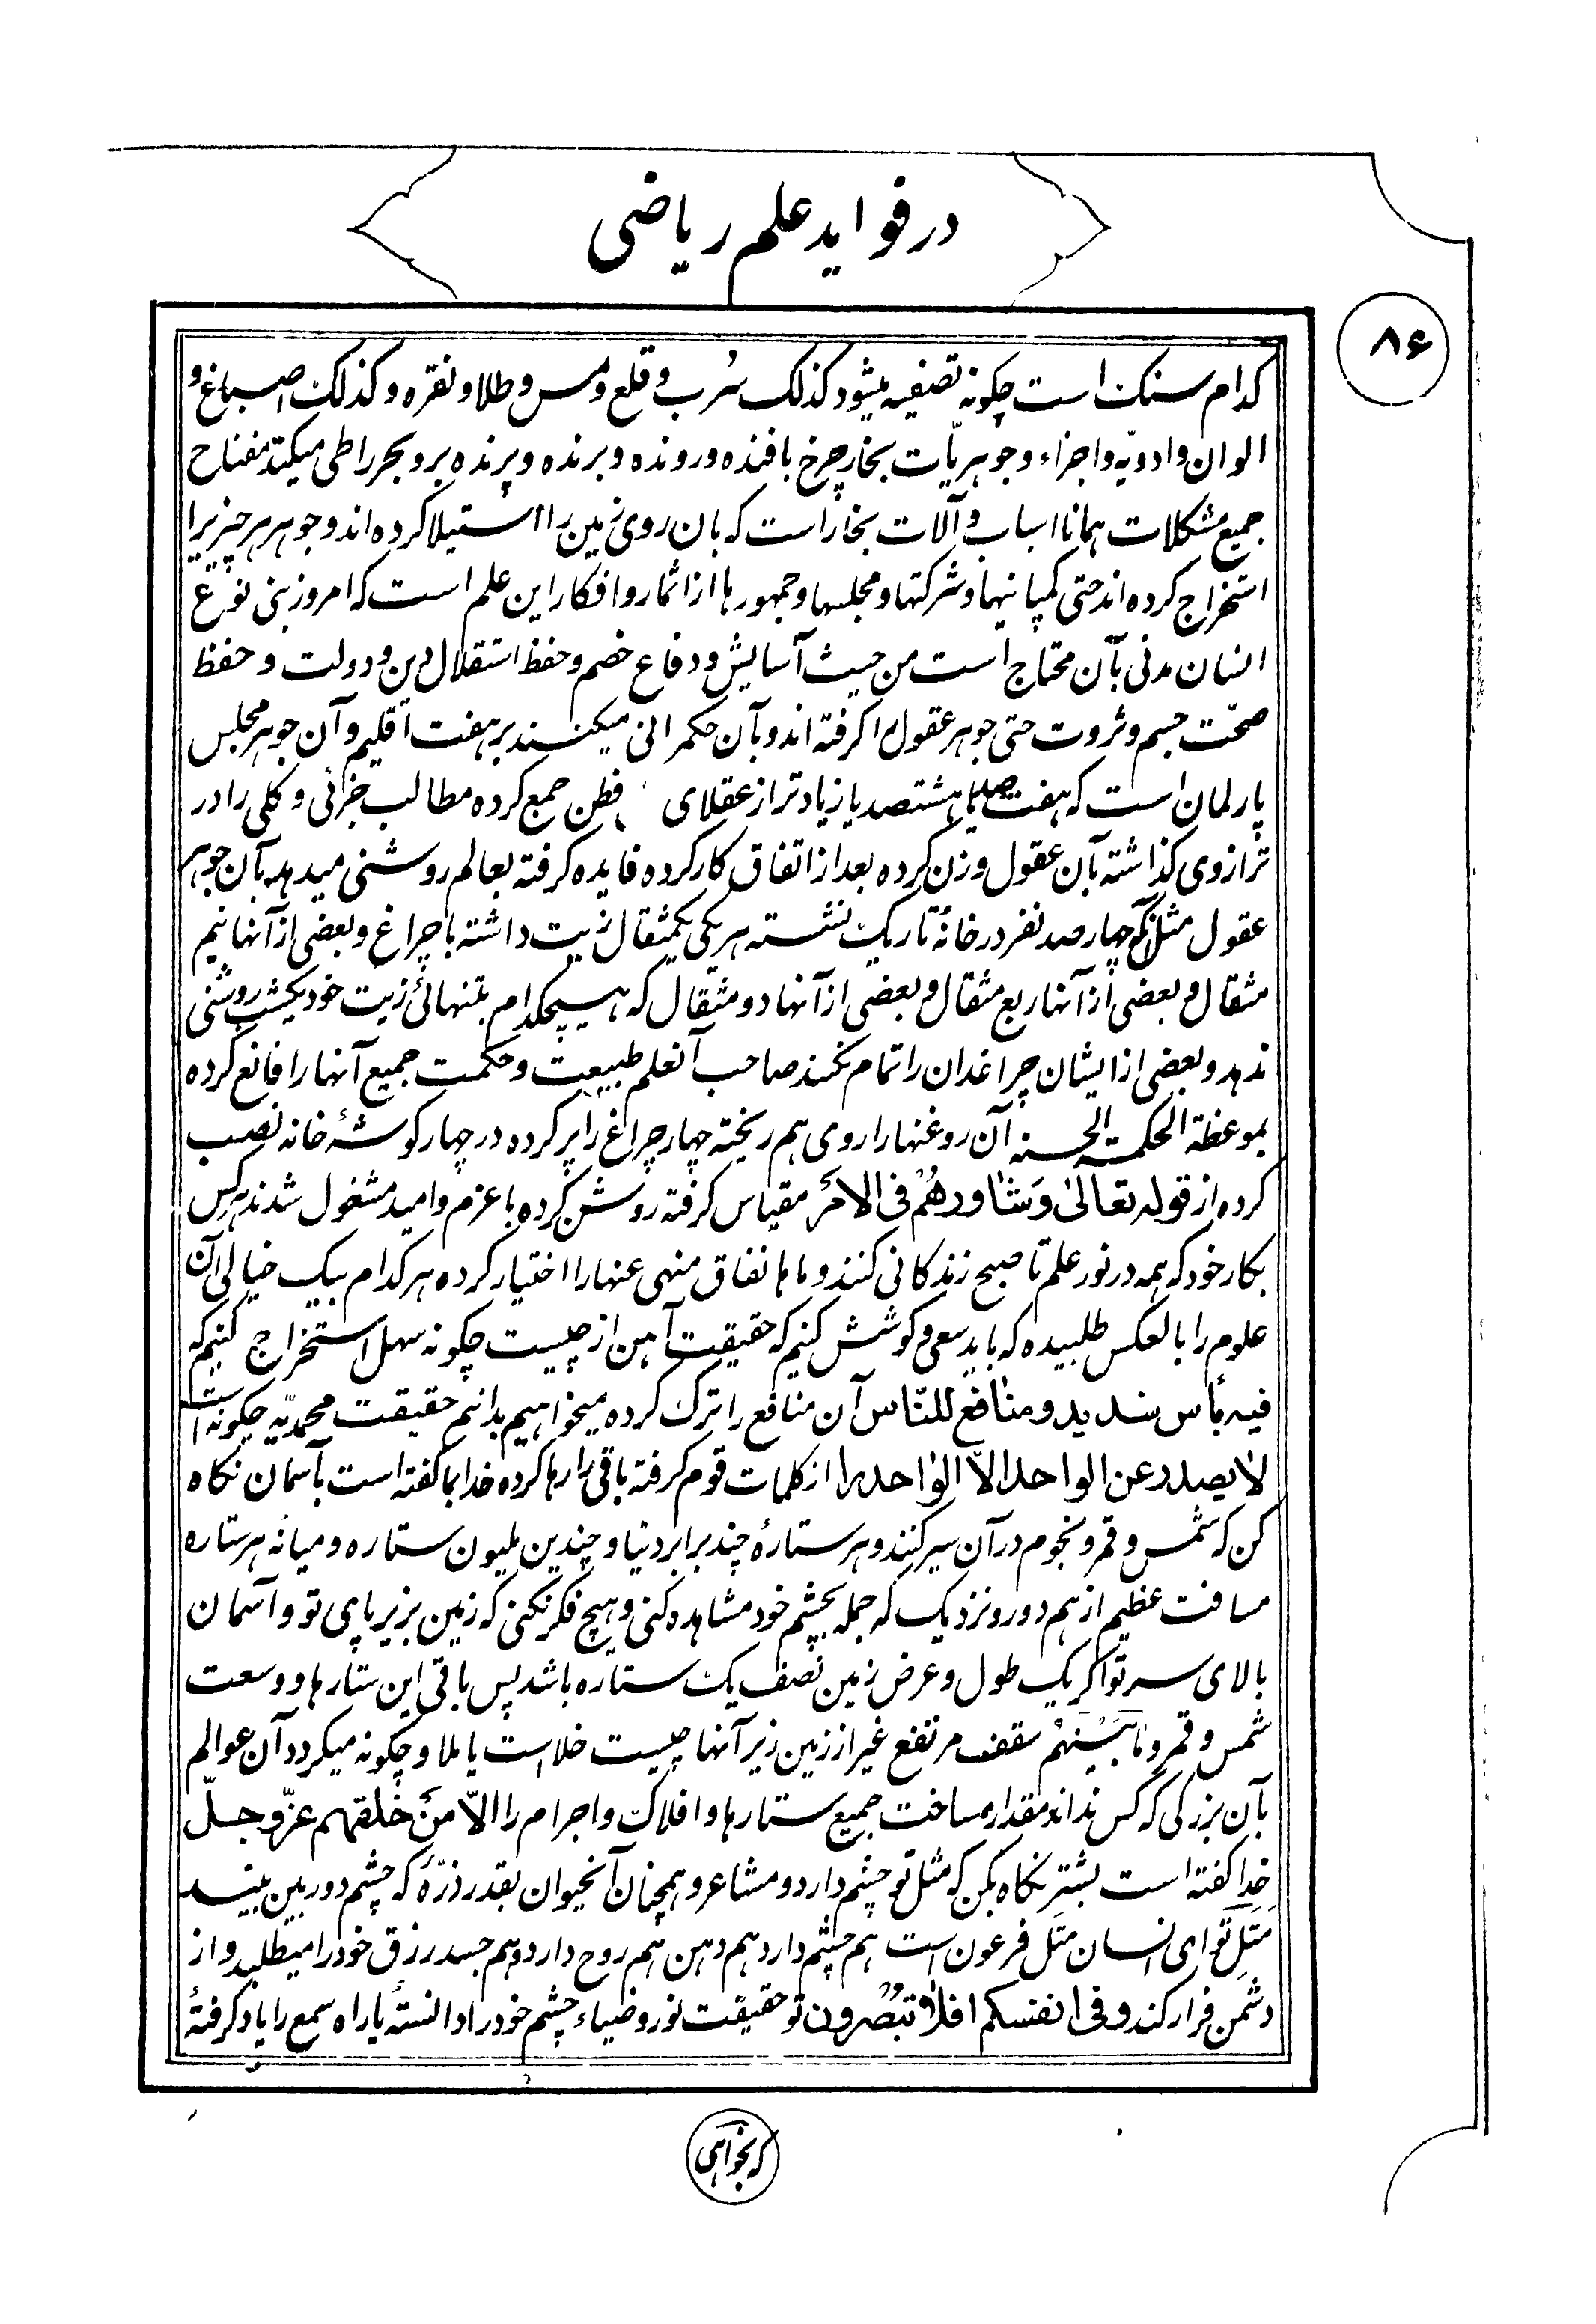 در فواید علم ریاضی
۸۶
کدام سنک است چکونه تصفیه میشود کذلک سُرب و قلع و مس و طلا و نقره و کذلک اصباغ و
الوان و ادویّه و اجزاء و جوهریّات بخار چرخ بافنده و رونده و برنده و پرنده بر و بحر را طی میکند مفتاح
جمیع مشکلات همانا اسباب و آلات بخار است که بان روی زمین را استیلا کرده اند و جوهر هر چیزیرا
استخراج کرده اند حتی کمپانیها و شرکتها و مجلسها و جمهورها از اثمار و افکار این علم است که امروز بنی نوع
انسان مدنی بآن محتاج است من حیث آسایش و دفاع خصم و حفظ استقلال دین و دولت و حفظ
صحّت جسم و ثروت حتی جوهر عقول را کرفته اند و بآن حکمرانی میکنند بر هفت اقلیم و آن جوهر مجلس
پارلمان است که هفتصد یا هشتصد یا زیادتر از عقلای فطن جمع کرده مطالب جزائی و کلی را در
ترازوی کذاشته بآن عقول وزن کرده بعد از اتفاق کار کرده فایده کرفته بعالم روشنی میدهد بآن جوهر
عقول مثل آنکه چهارصد نفر در خانهٔ تاریک نشسته هر یکی یکمثقال زیت داشته با چراغ و بعضی از آنها نیم
مثقال و بعضی از آنها ربع مثقال و بعضی از آنها دو مثقال که هیچکدام بتنهائی زیت خود یکشب روشنی
ندهد و بعضی از ایشان چراغدان را تمام نکند صاحب آنعلم طبیعت و حکمت جمیع آنها را قانع کرده
بموعظة الحکمت الحسنه آن روغنها را روی هم ریخته چهار چراغ را پر کرده در چهار کوشهٔ خانه نصب
کرده از قوله تعالیٰ وَشاورهُمُ فی الامَر مقیاس کرفته روشن کرده با عزم و امید مشغول شدند هرکس
بکار خود که همه در نور علم تا صبح زندکانی کنند و ما ها نفاق منهی عنها را اختیار کرده هر کدام بیک خیالی آن
علوم را بالعکس طلبیده که باید سعی و کوشش کنیم که حقیقت آهن از چیست چکونه سهل استخراج کنیم که
فیه بأس شدید و منافع للنّاس آن منافع را ترک کرده میخواهیم بدانیم حقیقت محمدیّه چکونه است
لا یصدر عن الواحد الاّ الواحد را از کلمات قوم کرفته باقی را رها کرده خدا بما کفته است بآسمان نکاه
کن که شمس و قمر و نجوم در آن سیر کنند و هر ستارهٔ چند برابر دنیا و چندین ملیون ستاره و میانهٔ هر ستاره
مسافت عظیم از هم دور و نزدیک که جمله بچشم خود مشاهده کنی و هیچ فکر نکنی که زمین بزیر پای تو و آسمان
بالای سر تو اکر یک طول و عرض زمین نصف یک ستاره باشد پس باقی این ستارها و وسعت
شمس و قمر و مابَیْنهُم سقف مرتفع غیر از زمین زیر آنها چیست خلا است یا ملا و چکونه میکردد آن عوالم
بآن بزرکی که کس نداند مقدار مساحت جمیع ستارها و افلاک و اجرام را الاّ مَنْ خلقهم عزّ و جلّ
خدا کفته است بشتر نکاه بکن که مثل تو چشم دارد و مشاعر و همچنان آنحیوان بقدر ذرّهٔ که چشم دوربین بیند
مثل تو ای انسان مثل فرعون است هم چشم دارد هم دهن هم روح دارد و هم جسد رزق خود را میطلبد و از
دشمن فرار کند و فی انفسکم افلا تبُصُرون تو حقیقت نور و ضیاء چشم خود را دانستهٔ یا راه سمع را یاد کرفتهٔ
که بخواهی